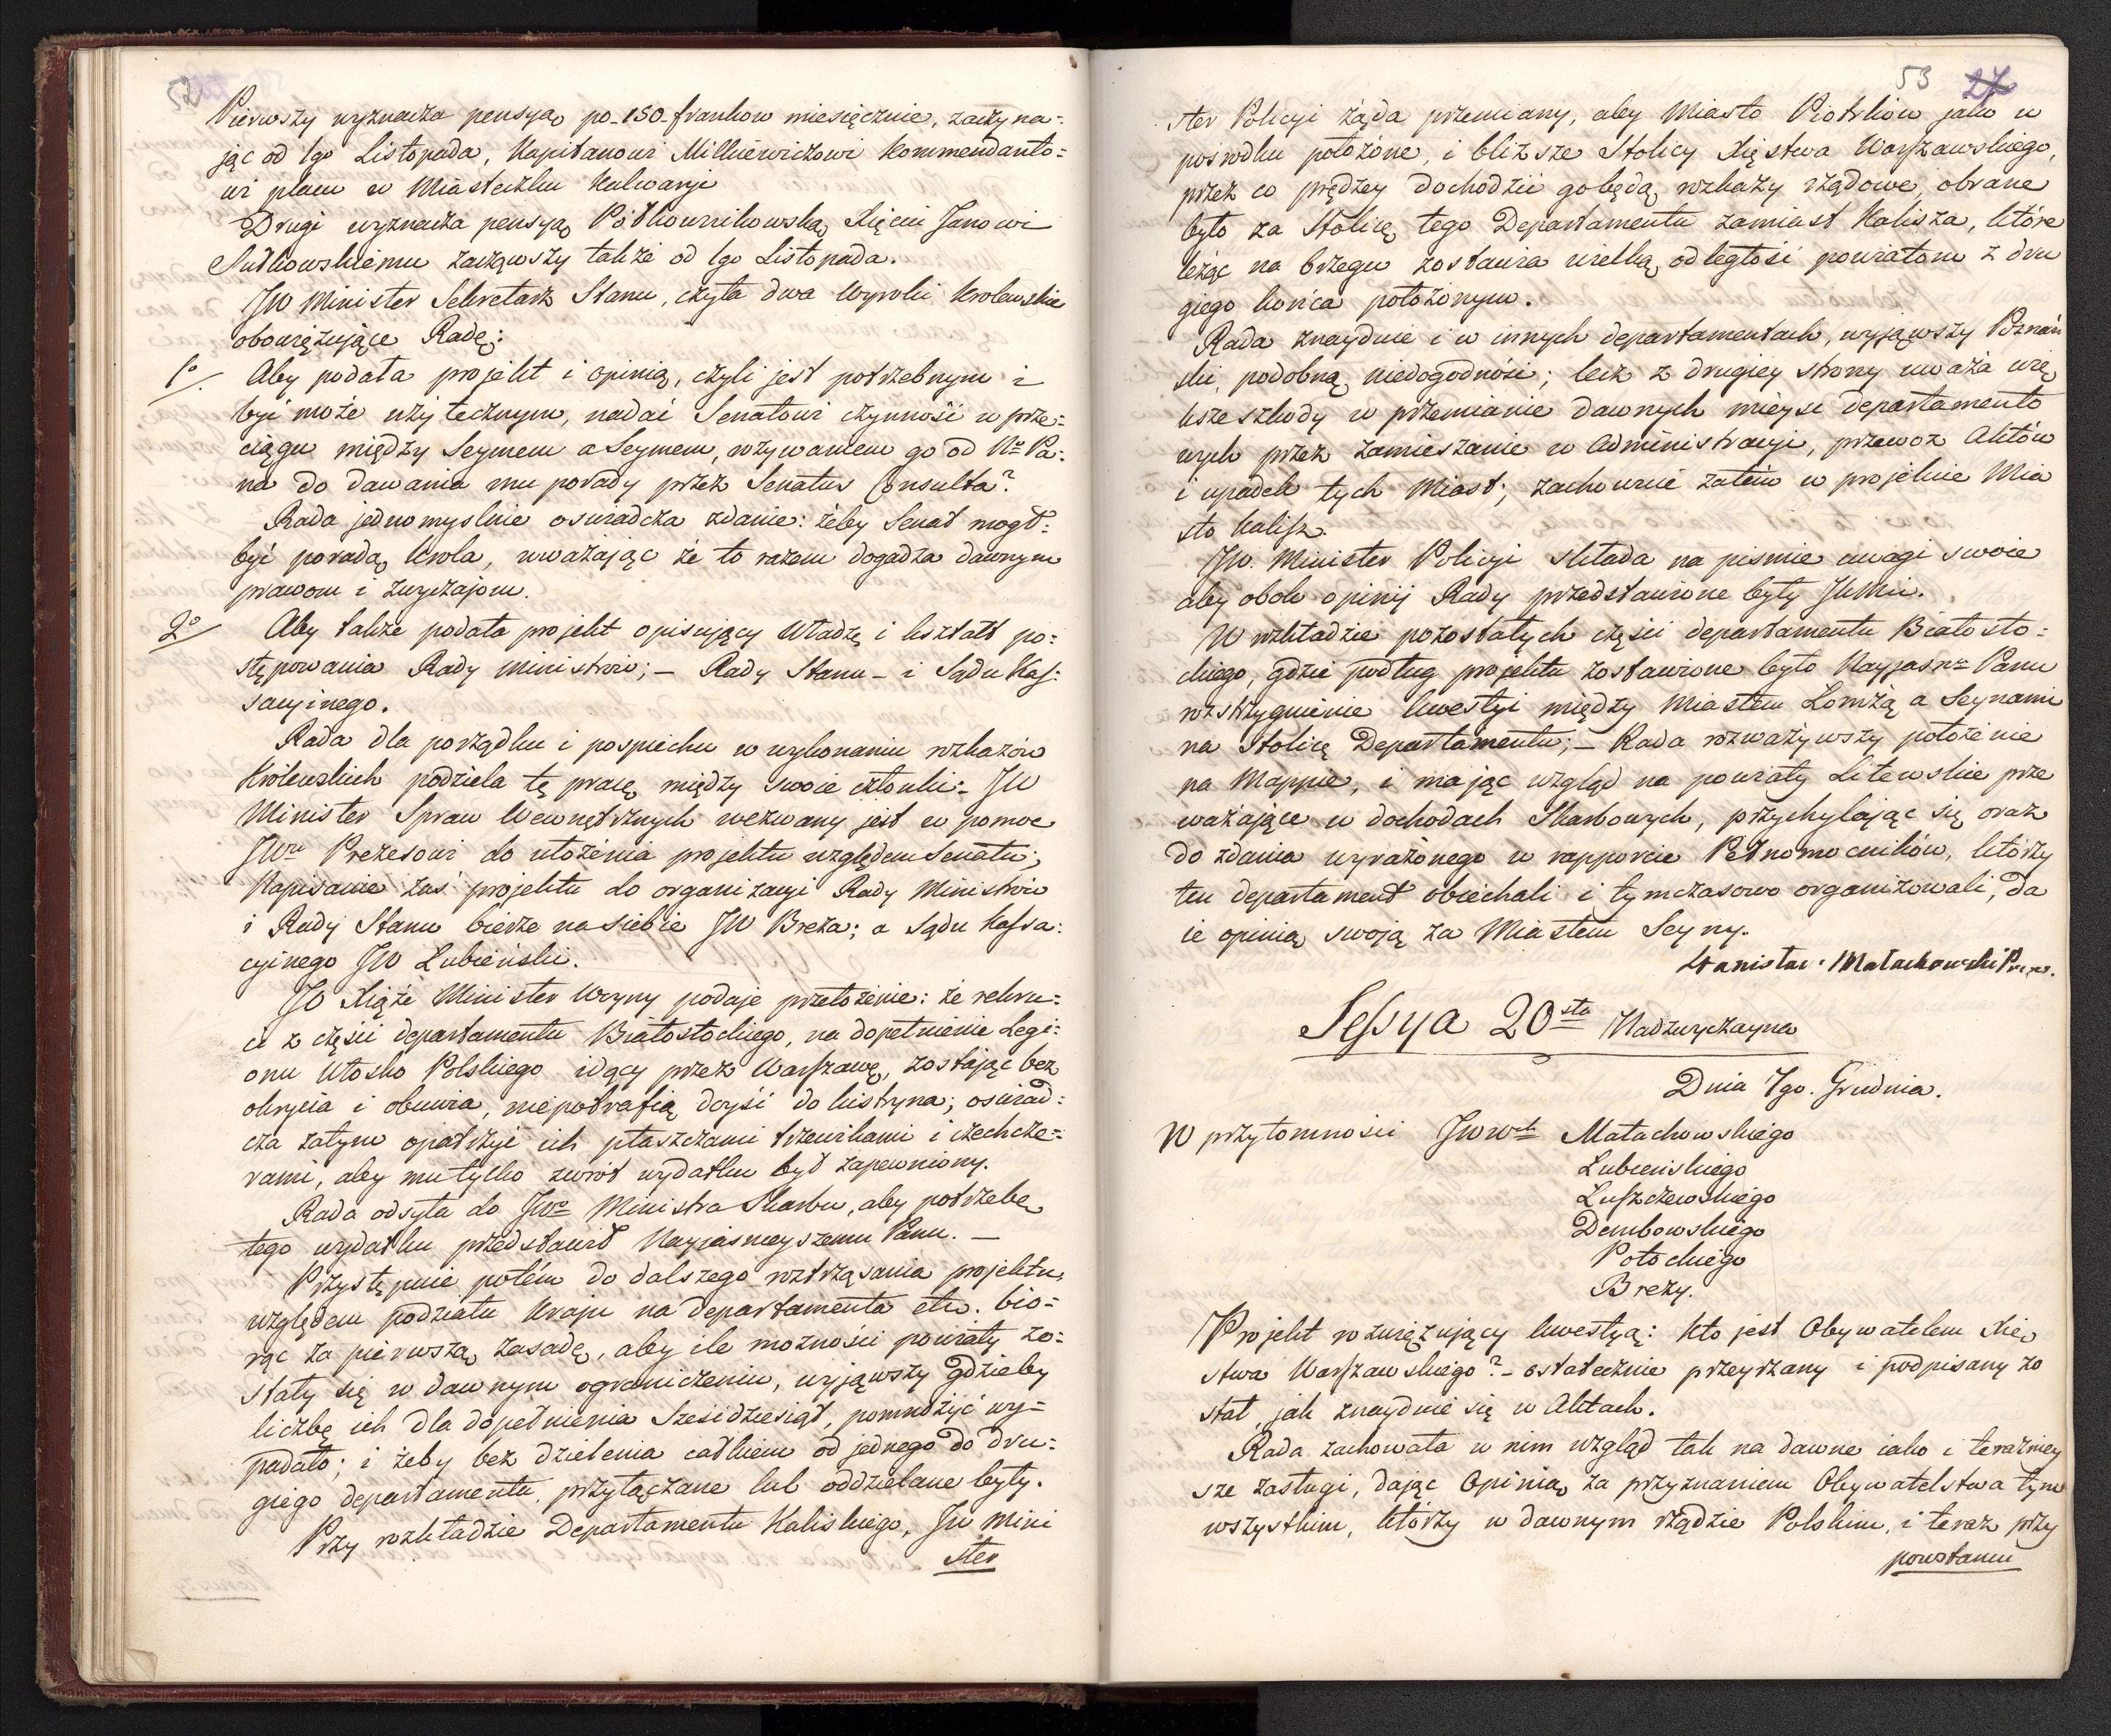 52
Pierwszy wyznacza pensyą po 150 frankow miesięcznie, zaczyna=
jąc od 1go Listopada, Kapitanowi Milkiewiczowi kommendanto=
wi placu w Miasteczku Kalwaryi
Drugi wyznacza pensyą Półkownikowską Xięciu Janowi
Sułkowskiemu zacząwszy także od 1go Listopada.
JW Minister Sekretarz Stanu, czyta dwa Wyroki Krolewskie
obowięzujące Radę:
1o/ Aby podała projekt i opinią, czyli jest potrzebnym i
być może użytecznym, nadać Senatowi czynność w prze=
ciągu między Seymem a Seymem, wzywaniem go od Nº Pa=
na do dawania mu porady przez Senatus Consulta?
Rada jednomyslnie oswiadcza zdanie: żeby Senat mogł=
być poradą Krola, uważając że to razem dogadza dawnym
prawom i zwyczajom.
2o/ Aby także podała projekt opisujący Władzę i kształt po=
stępowania Rady Ministrow; – Rady Stanu – i Sądu Kas=
sacyinego.
Rada dla porządku i pospiechu w wykonaniu rozkazów
Królewskich podziela tę pracę między swoie członki – JW
Minister Spraw Wewnętrznych wezwany jest w pomoc
JWmu Prezesowi do ułożenia projektu względem Senatu;
Napisanie zaś projektu do organizacyi Rady Ministrow
i Rady Stanu bierze na siebie JW Breza; a Sądu Kassa=
cyinego JW Łubieński.
JO Xiąże Minister Woyny podaje przełożenie: że rekru=
ci z części departamentu Białostockiego, na dopełnienie Legi=
onu Włosko Polskiego idący przez Warszawę, zostając bez
okrycia i obuwia, niepotrafią doyść do Kistryna; oswiad=
cza zatym opatrzyć ich płaszczami trzewikami i czechcze=
rami, aby mu tylko zwrot wydatku był zapewniony.
Rada odsyła do JWo Ministra Skarbu, aby potrzebę
tego wydatku przedstawił Nayjasnieyszemu Panu. –
Przystępuie potém do dalszego roztrząsania projektu,
względem podziału Kraju na departamenta etc. bio=
rąc za pierwszą zasadę, aby ile możności powiaty zo=
stały się w dawnym ograniczeniu, wyjąwszy gdzieby
liczbę ich dla dopełnienia Szesidziesiąt, pomnożyć wy=
padało; i żeby bez dzielenia całkiem od jednego do dru=
giego departamentu, przyłączane lub oddzielane były.
Przy rozkładzie Departamentu Kaliskiego, JW Mini
ster
53 27
ster Policyi żąda przemiany, aby Miasto Piotrków jako w
posrodku położone, i bliższe Stolicy Xięstwa Warszawskiego,
przez co prędzey dochodzić go będą rozkazy rządowe, obrane
było za Stolicę tego Departamentu zamiast Kalisza, które
leżąc na brzegu zostawia wielką odległość powiatom z dru
giego końca położonym.
Rada znayduie i w innych departamentach, wyjąwszy Poznań
ski, podobną niedogodność; lecz z drugiey strony uważa wię
ksze szkody w przemianie dawnych mieysc departamento
wych przez zamieszanie w Administracyi, przewoz Aktów
i upadek tych Miast; zachowuié zatém w projekcie Mia
sto Kalisz.
JW. Minister Policyi składa na pismie uwagi swoie
aby obok opinij Rady przedstawione były JKMci.
W rozkładzie pozostałych części departamentu Białosto=
ckiego, gdzie podług projektu zostawione było Nayjasno Panu
rozstrzygnienie kwestyi między Miastem Łomżą a Seynami
na Stolicę Departamentu; – Rada rozważywszy położenie
na Mappie, i mając wzgląd na powiaty Litewskie prze
ważające w dochodach Skarbowych, przychylając się oraz
do zdania wyrażonego w rapporcie Pełnomocników, którzy
ten departament obiechali i tymczasowo organizowali, da
ie opinią swoją za Miastem Seyny.
Stanisław Małachowski Prezes.
Sessya 20sta Nadzwyczayna
Dnia 7go Grudnia.
W przytomności JWWch Małachowskiego
Łubieńskiego
Łuszczewskiego
Dembowskiego
Potockiego
Brezy.
Projekt rozwięzujący kwestyą: Kto jest Obywatelem Xię
stwa Warszawskiego? – ostatecznie przeyrzany i podpisany zo
stał, jak znayduie się w Aktach.
Rada zachowała w nim wzgląd tak na dawne iako i teraźniey
sze zasługi, dając Opinią za przyznaniem Obywatelstwa tym
wszystkim, którzy w dawnym rządzie Polskim, i teraz przy
powstaniu